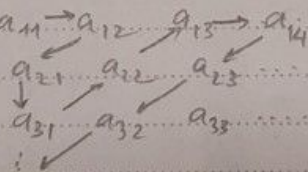 a₁₁ → a₁₂ a₁₃ → a₁₄
a₂₁ a₂₂ a₂₃ ....
a₃₁ a₃₂ a₃₃ ....
⋮